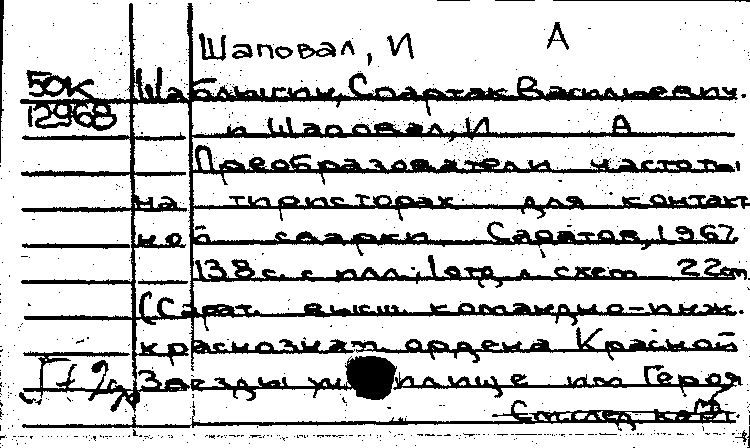 Шаповал, И А
50К Шаблыгин, Спартак Васильевич.
12968 и Шаповал, И А
Преобразователи частоты
на тиристорах для контакт
ной сварки Саратов, 1967.
138 с. с илл.; 1 отд. л схем 22 cm
(Сарат. высш. командно-инж.
краснознам. ордена Красной
Звезды училище им Героя
См. след карт